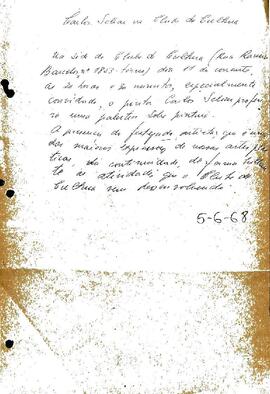 Carlos Scliar no Clube de Cultura
Na sede do Clube de Cultura (Rua Ramiro
Barcelos, nº 1853 - térreo) dia 11 do corrente,
às 20 horas e 30 minutos, especialmente
convidado, o pintor Carlos Scliar profe-
rirá uma palestra sobre pintura.
A presença do festejado artista, que é um
dos maiores expressões de nossas artes plás-
ticas, dá continuidade, de forma
às atividades que o Clube de
Cultura vem desenvolvendo.
5-6-68